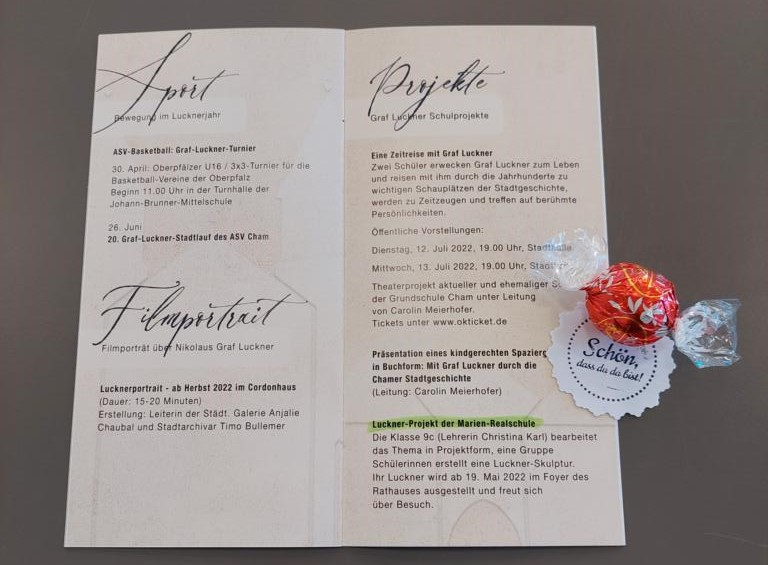 Sport
Bewegung im Lucknerjahr
ASV-Basketball: Graf-Luckner-Turnier
30. April: Oberpfälzer U16 / 3x3-Turnier für die
Basketball-Vereine der Oberpfalz
Beginn 11.00 Uhr in der Turnhalle der
Johann-Brunner-Mittelschule
26. Juni
20. Graf-Luckner-Stadtlauf des ASV Cham
Filmportrait
Filmporträt über Nikolaus Graf Luckner
Lucknerportrait - ab Herbst 2022 im Cordonhaus
(Dauer: 15-20 Minuten)
Erstellung: Leiterin der Städt. Galerie Anjalie
Chaubal und Stadtarchivar Timo Bullemer
Projekte
Graf Luckner Schulprojekte
Eine Zeitreise mit Graf Luckner
Zwei Schüler erwecken Graf Luckner zum Leben
und reisen mit ihm durch die Jahrhunderte zu
wichtigen Schauplätzen der Stadtgeschichte,
werden zu Zeitzeugen und treffen auf berühmte
Persönlichkeiten.
Öffentliche Vorstellungen:
Dienstag, 12. Juli 2022, 19.00 Uhr, Stadthalle
Mittwoch, 13. Juli 2022, 19.00 Uhr,
Theaterprojekt aktueller und ehemaliger
der Grundschule Cham unter Leitung
von Carolin Meierhofer.
Tickets unter www.okticket.de
Präsentation eines kindgerechten
in Buchform: Mit Graf Luckner durch die
Chamer Stadtgeschichte
(Leitung: Carolin Meierhofer)
Luckner-Projekt der Marien-Realschule
Die Klasse 9c (Lehrerin Christina Karl) bearbeitet
das Thema in Projektform, eine Gruppe
Schülerinnen erstellt eine Luckner-Skulptur.
Ihr Luckner wird ab 19. Mai 2022 im Foyer des
Rathauses ausgestellt und freut sich
über Besuch.
Schön,
dass du da bist!